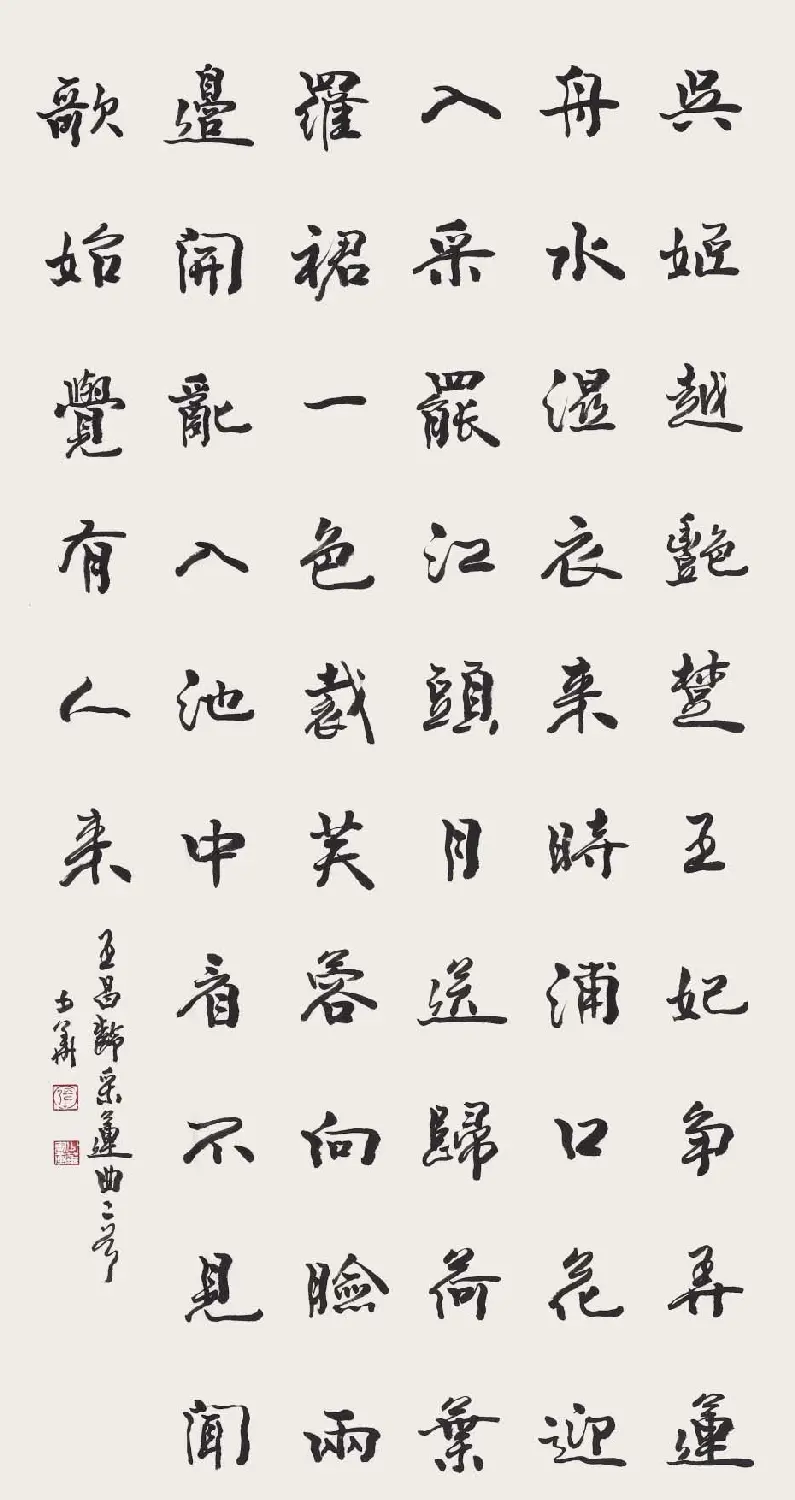 吳姬越艷楚王妃争弄蓮
舟水湿衣来時浦口花迎
入采罷江頭月送歸荷葉
羅裙一色裁芙蓉向臉兩
邊開亂入池中看不見聞
歌始覺有人来
王昌齡采蓮曲二首